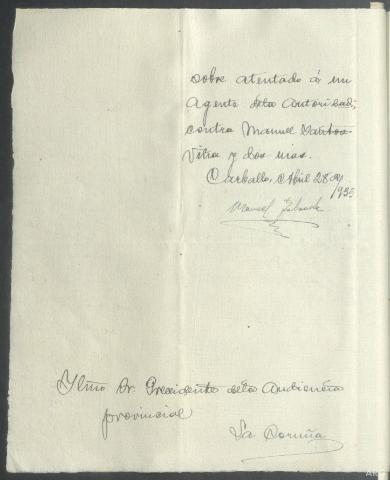 sobre atentado á un
Agente dela Autoridad,
contra Manuel Santos
Vilra y dos mas.
Carballo, Abril 28 de
1933
Manuel
Ylmo Sr. Presidente dela Audiencia
provincial
La Coruña